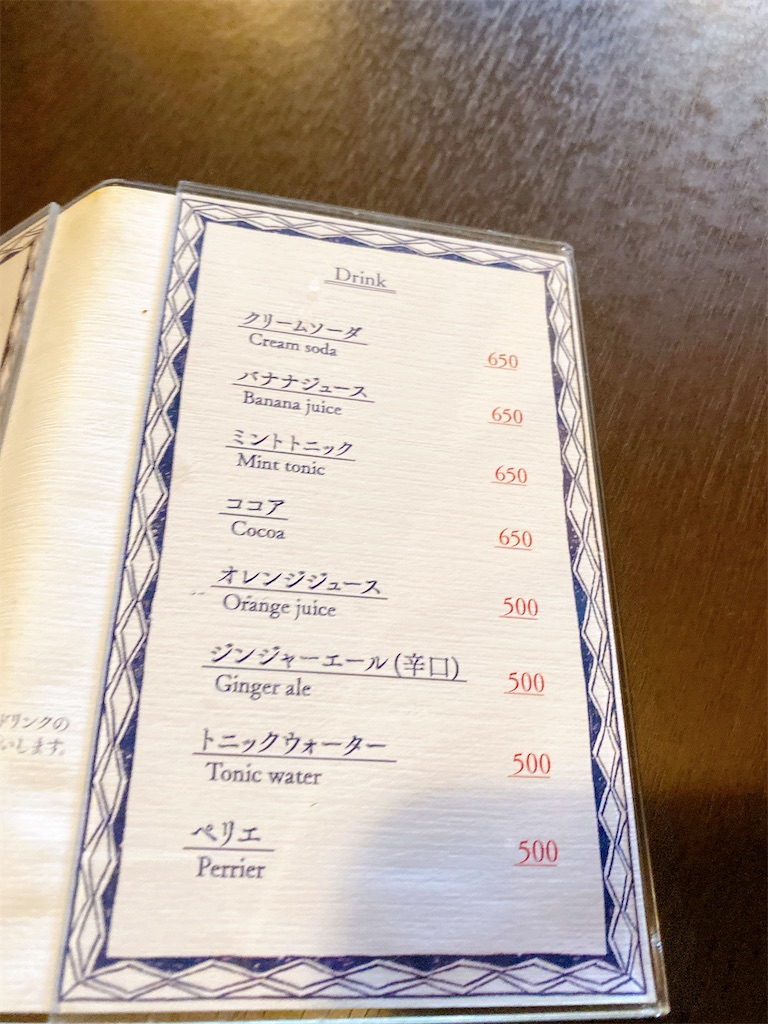 Drink
クリームソーダ
Cream soda
650
バナナジュース
Banana juice
650
ミントトニック
Mint tonic
650
ココア
Cocoa
650
オレンジジュース
Orange juice
500
ジンジャーエール(辛口)
Ginger ale
500
トニックウォーター
Tonic water
500
ペリエ
Perrier
500
ドリンクの
いします。